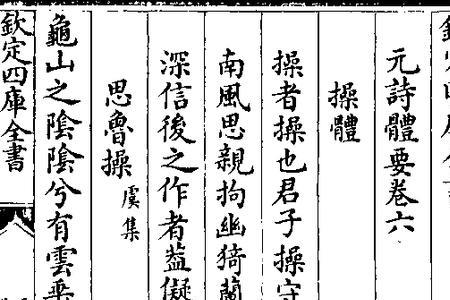 元詩體要卷六
操體
操者操也君子操守
南風思親拘幽猗蘭
深信後之作者葢儗
思魯操 虞集
龜山之陰陰兮有雲乘
欽定四庫全書